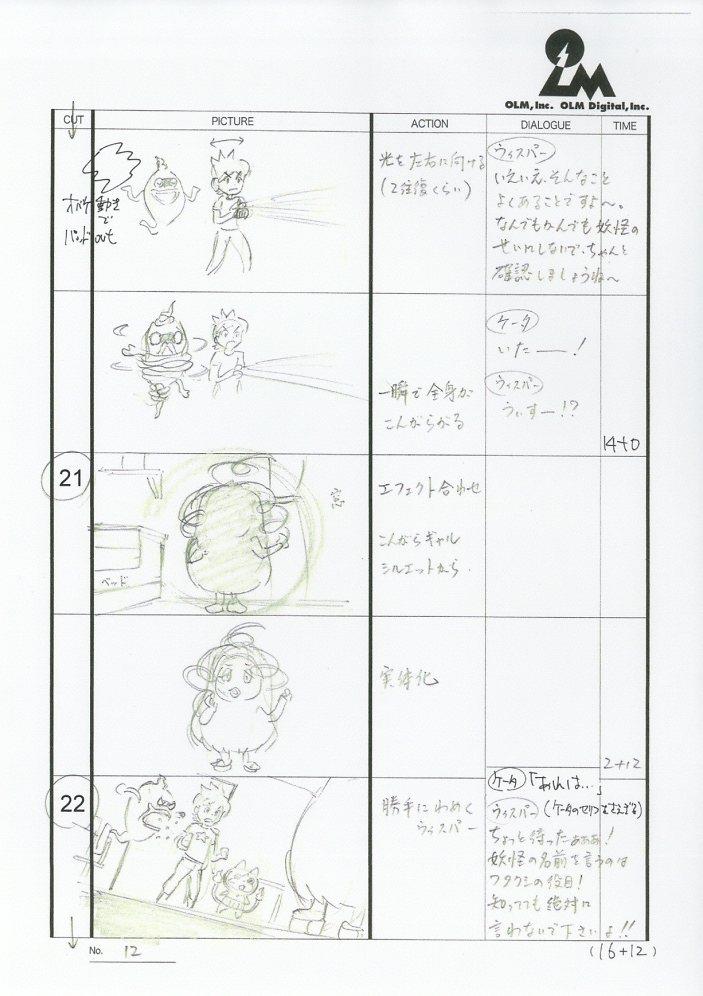 OLM, Inc. OLM Digital, Inc.
CUT PICTURE ACTION DIALOGUE TIME
オバケ動き
で
out
光を左右に向ける
(2往復くらい)
ウィスパー
いえいえ、そんなこと
よくあることですよ〜。
なんでもかんでも妖怪の
せいにしないで、ちゃんと
確認しましょうね〜
ケータ
いたー!
一瞬で全身が
こんがらがる
ウィスパー
うぃすー!?
14+0
21
エフェクト合わせ
こんがらギャル
シルエットから
ベッド
窓
実体化
2+12
22
勝手にわめく
ウィスパー
ケータ「あれは…」
ウィスパー(ケータのセリフをさえぎる)
ちょっと待ったぁぁぁ!
妖怪の名前を言うのは
ワタクシの役目!
知ってても絶対に
言わないで下さいよ!!
No. 12
(16+12)